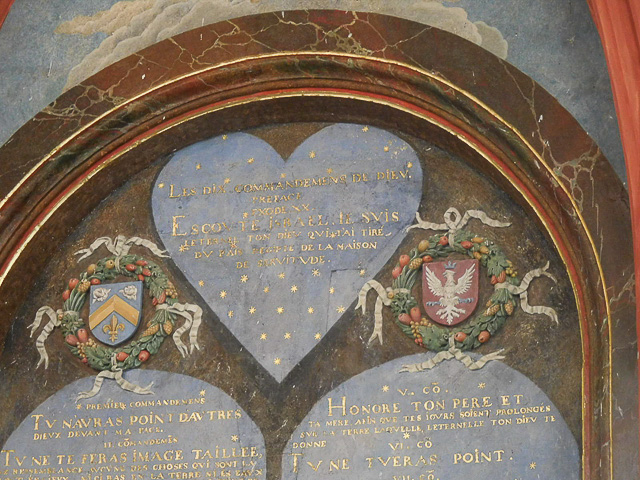 LES DIX COMMANDEMENS DE DIEV.
PREFACE
EXODE XX.
ESCOVTE ISRAEL, IE SVIS
LETERNEL TON DIEV QVI T'AI TIRE
DV PAIS DE LA MAISON
DE SERVITVDE.
PREMIER COMMANDEMENS
TV N'AVRAS POINT D'AVTRES
DIEVX DEVANT MA FACE.
II. COMANDEMES
TV NE TE FERAS IMAGE TAILLEE,
DES CHOSES QVI SONT
EN LA TERRE
V. CO.
HONORE TON PERE ET
TA MERE AFIN QVE TES IOVRS SOIENT PROLONGES
SVR LA TERRE LAQVELLE LETERNEL TON DIEV TE
DONNE
VI. CO
TV NE TVERAS POINT.
VII. CO.